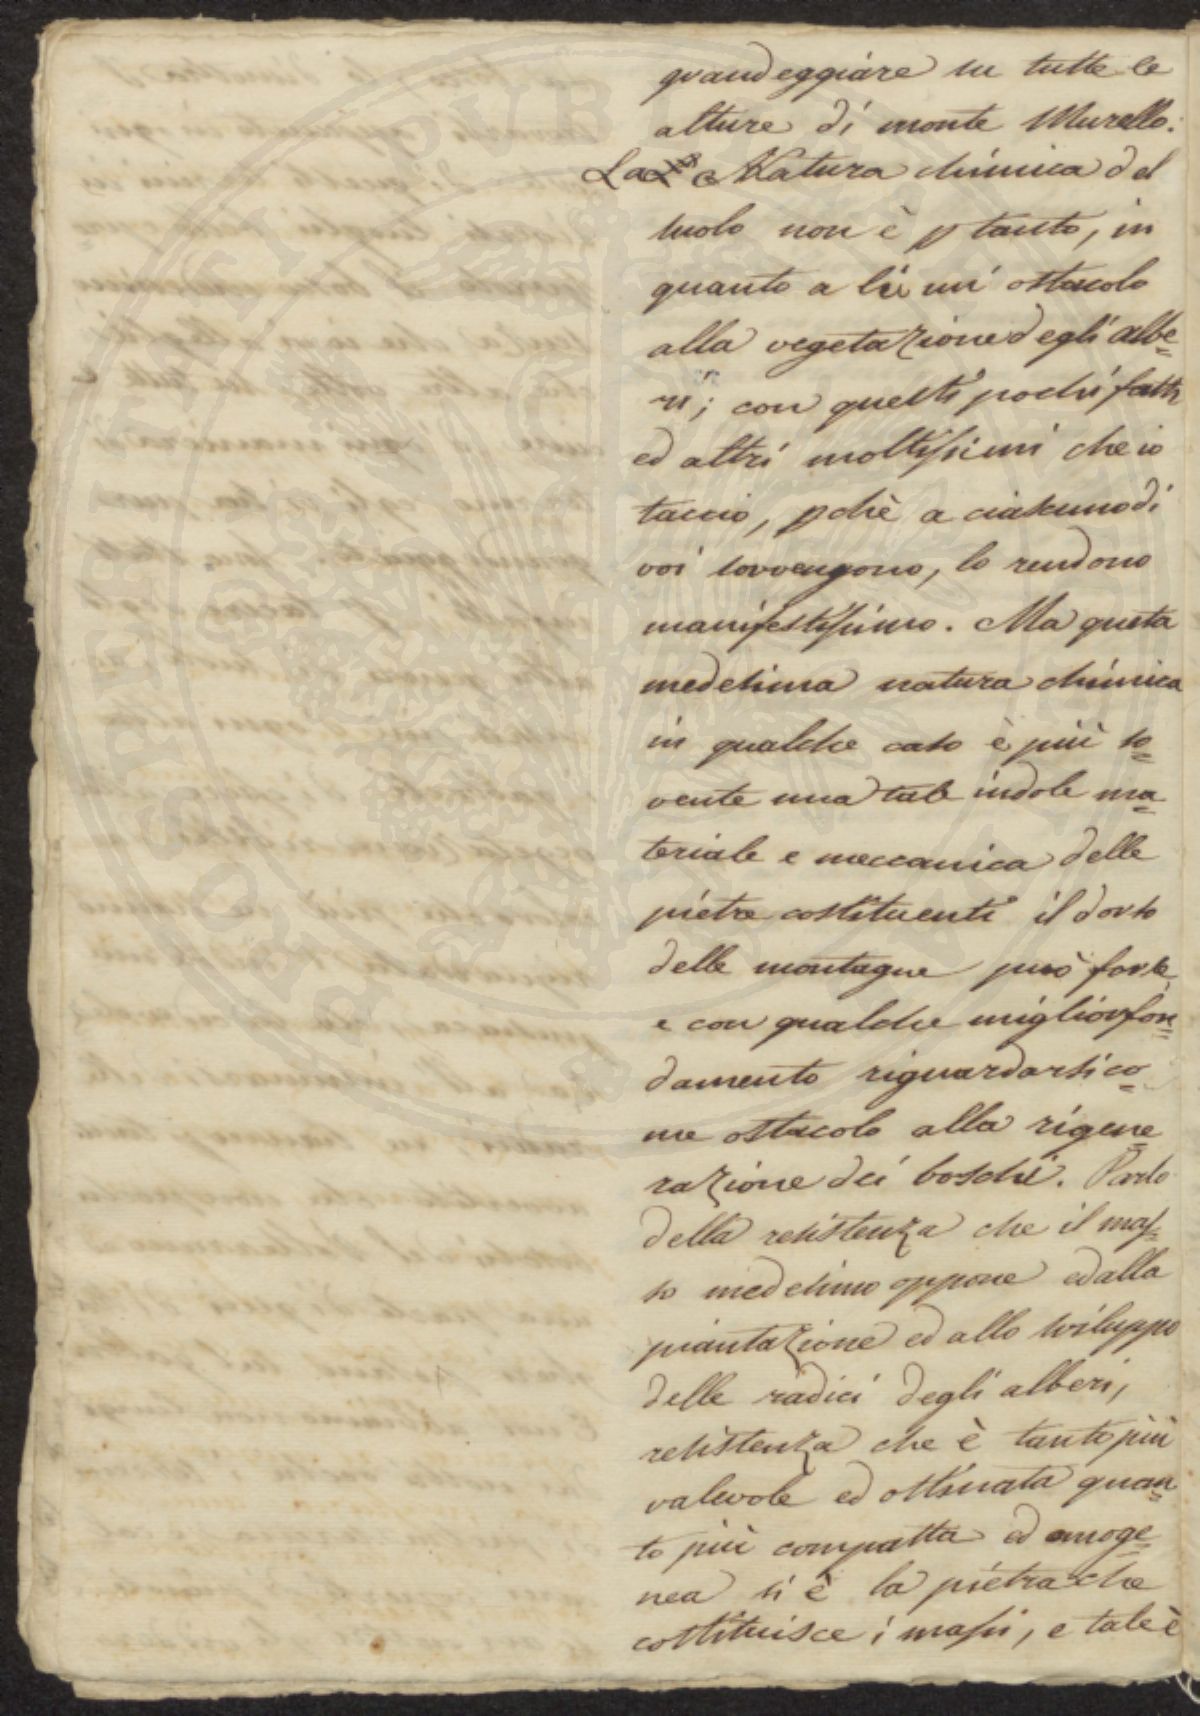 grandeggiare su tutte le
alture di monte Murello.
La Natura chimica del
suolo non è p tanto, in
quanto a lei un' ostacolo
alla vegetazione degli albe=
ri; con questi pochi fatti
ed altri moltissimi che io
taccio, pchè a ciascuno di
voi sovvengono, lo rendono
manifestissimo. Ma questa
medesima natura chimica
in qualche caso è più so=
vente una tale indole ma=
teriale e meccanica delle
pietre costituenti il dorso
delle montagne può forse,
e con qualche miglior fon=
damento riguardarsi co=
me ostacolo alla rigene=
razione dei boschi. Parlo
della resistenza che il mas=
so medesimo oppone ed alla
piantazione ed allo sviluppo
delle radici degli alberi,
resistenza che è tanto più
valevole ed ostinata quan=
to più compatta ed omoge=
nea si è la pietra che
costituisce i massi, e tale è